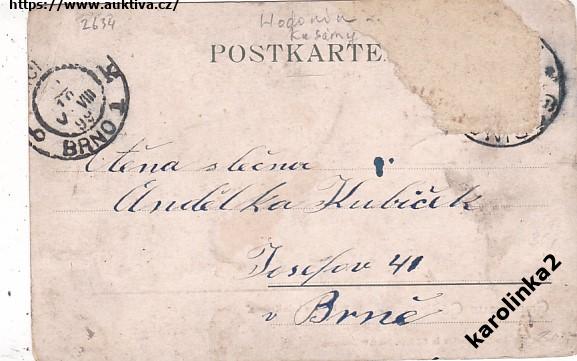 https://www.auktiva.cz/
2634
Hodonín
Kasárny
POSTKARTE
18
VIII
99
BRNO
Ctěna slečna
Andělka Kubiček
Josefov 41
v Brně
karolinka2